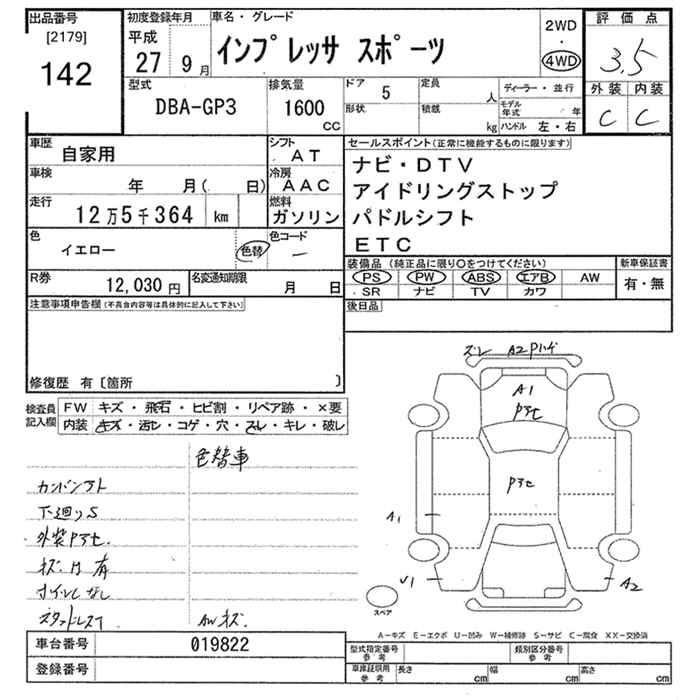 出品番号
[2179]
142
初度登録年月
平成
27 9月
車名・グレード
インプレッサ スポーツ
2WD
・
4WD
評価点
3.5
外装 内装
C C
型式
DBA-GP3
排気量
1600
cc
ドア 5
形状
定員 人
積載 kg
ディーラー・並行
モデル年式 年
ハンドル 左・右
車歴
自家用
シフト
AT
車検
年 月( 日)
冷房
AAC
走行
12万5千364 km
燃料
ガソリン
色
イエロー 色替
色コード
ー
セールスポイント(正常に機能するものに限ります)
ナビ・DTV
アイドリングストップ
パドルシフト
ETC
装備品(純正品に限り○をつけてください)
PS PW ABS エアB AW
SR ナビ TV カワ
新車保証書
有・無
R券
12,030円
名変通知期限
月 日
後日品
注意事項申告欄(不具合内容等は具体的に記入して下さい)
修復歴 有〔箇所 〕
検査員記入欄
FW キズ・飛石・ヒビ割・リペア跡・×要
内装 キズ・汚レ・コゲ・穴・スレ・キレ・破レ
色替車
下廻りS
外装Pアセ
キズ凹有
オイルなし
スタットレス
AWキズ
ズレ A2 Pハゲ
A1
Pアセ
Pアセ
A1
V1
A2
スペア
A-キズ E-エクボ U-凹み W-補修跡 S-サビ C-腐食 XX-交換済
車台番号
019822
登録番号
型式指定番号
参考
類別区分番号
参考
車庫証明用
参考
長さ cm
幅 cm
高さ cm